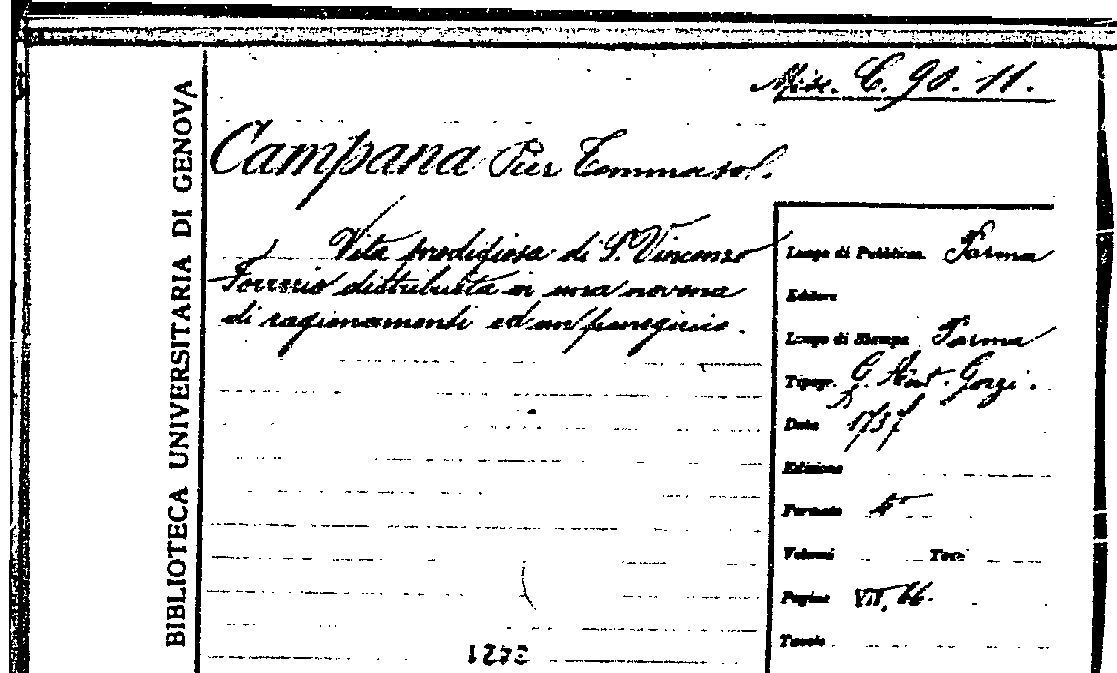 BIBLIOTECA UNIVERSITARIA DI GENOVA
Misc. C. 90. 11.
Campana Pier Tommaso.
Vita prodigiosa di S. Vincenzo
Ferrerio distribuita in una novena
di ragionamenti ed un panegirico.
Luogo di Pubblicaz. Parma
Editore
Luogo di Stampa Parma
Tipogr. G. Ant. Gozzi.
Data
Edizione
Formato 4°
Volumi Tomi
Pagine VII, 66.
Tavole